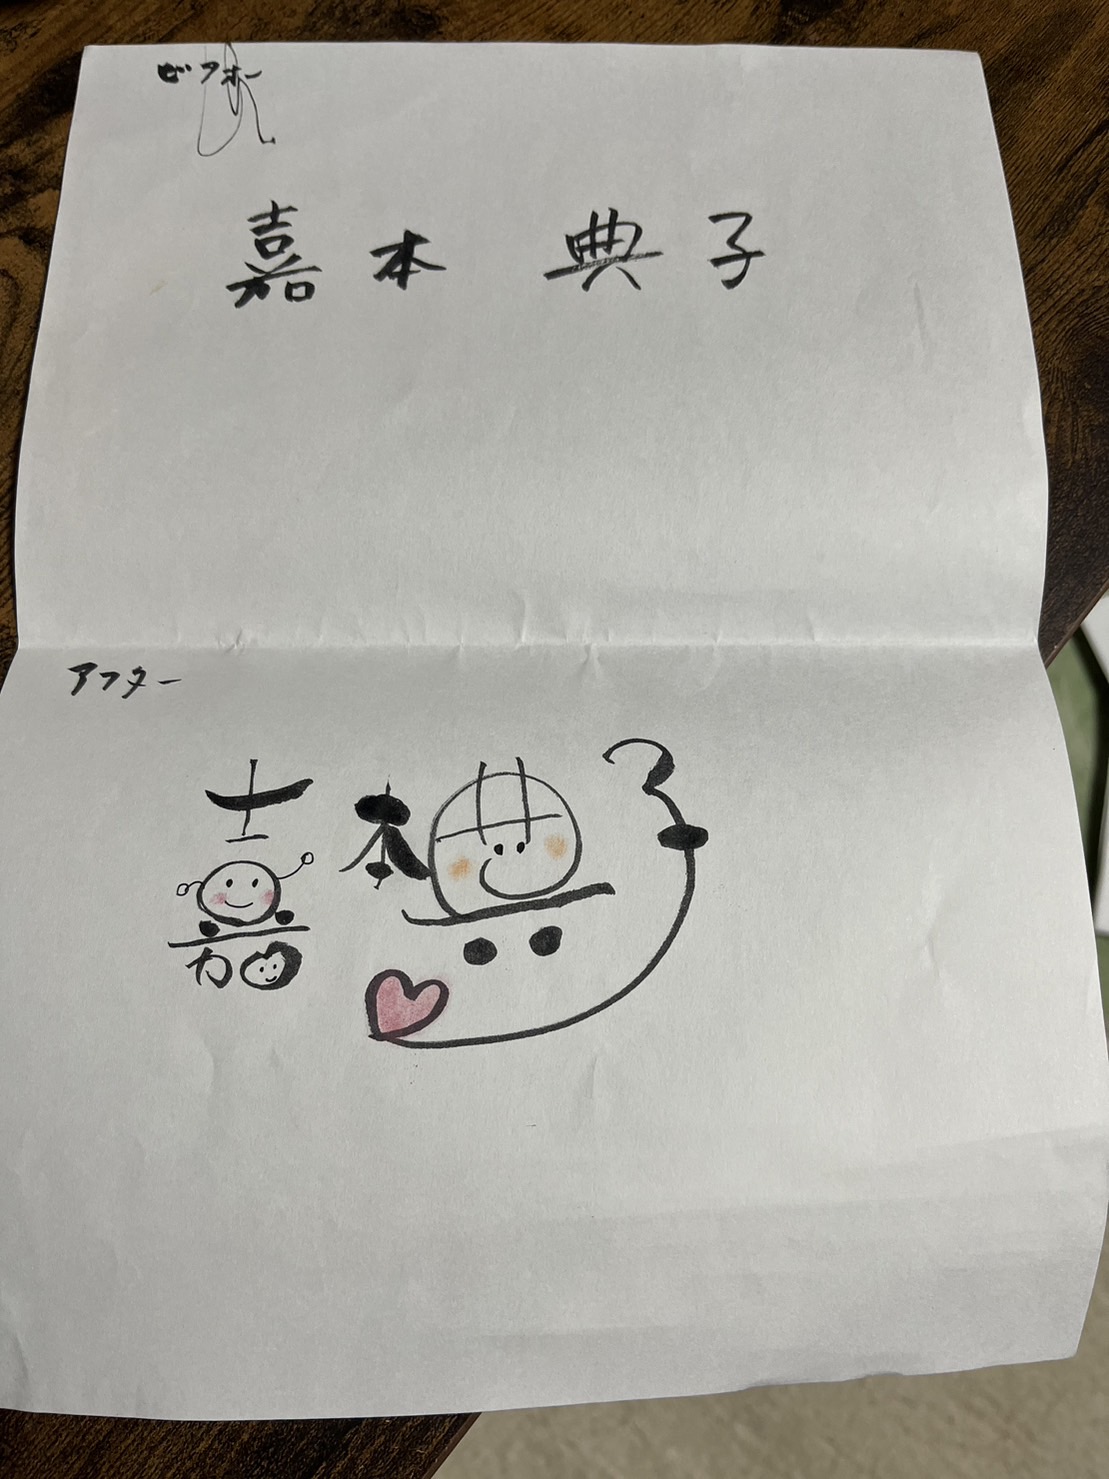 ビフォー
嘉本 典子
アフター
嘉本典子